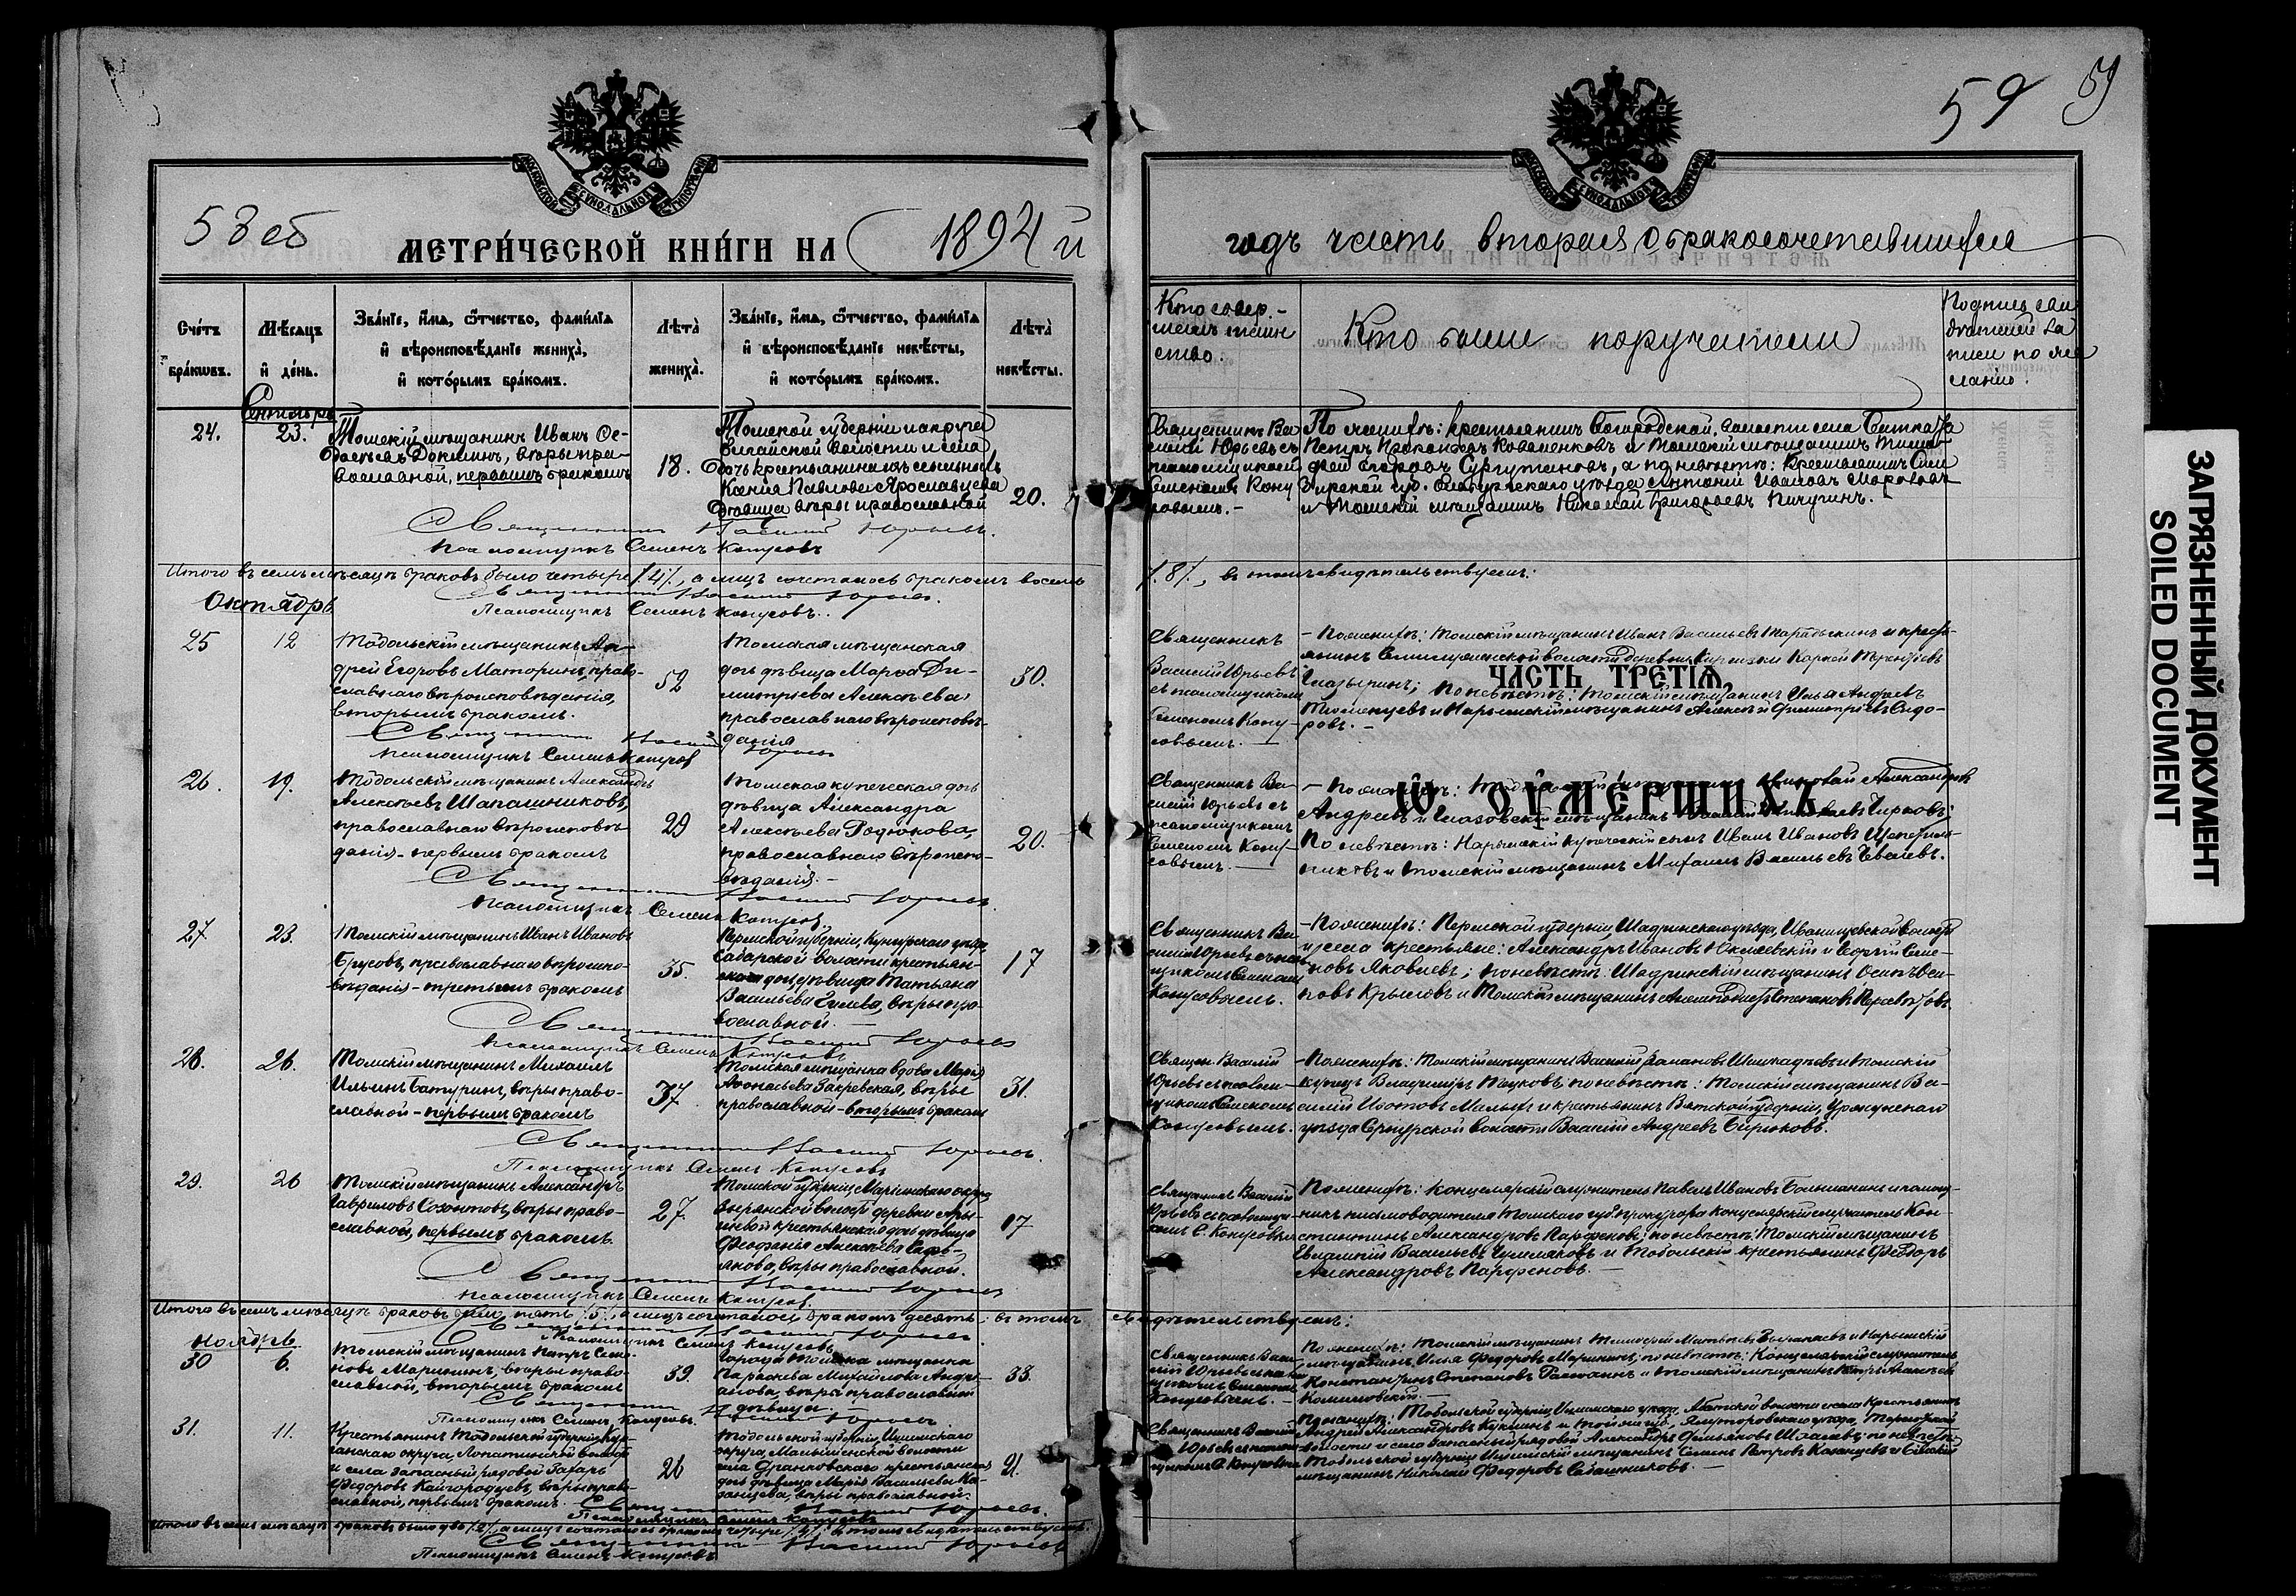 59
59
58 об
МЕТРИ́ЧЕСКОЙ КНИ́ГИ НА 1894 й
годъ часть вторая о бракосочетавшихся
Сче́тъ бра́кωвъ.
Мѣ́сяцъ и҆ де́нь.
Зва́нїе, и҆́мѧ, ѻ҆́тчество, фами́лїѧ
и҆ вѣроисповѣ́данїе жениха̀,
и҆ кото́рымъ бра́комъ.
Лѣта̀ жениха̀.
Зва́нїе, и҆́мѧ, ѻ҆́тчество, фами́лїѧ
и҆ вѣроисповѣ́данїе невѣ́сты,
и҆ кото́рымъ бра́комъ.
Лѣта̀ невѣ́сты.
Кто совер-
таин
ство.
Кто были поручители
Подпись сви
дѣтелей за
писи по же
ланію.
Сентябрь
24.
23.
Томскій мѣщанинъ Иванъ
вѣры пра-
вославной, первымъ бракомъ
18.
Томской губерніи и округа
волости и села
дочь крестьянина
Ксенія Павлова Ярославцева
дѣвица вѣры православной
20.
Священникъ Ва
силій Юрьевъ съ
псаломщикомъ
Семеномъ Кону
совымъ.-
По женихѣ: крестьянинъ Богородской волости села
Петръ и Томскій мѣщанинъ Тимо
фей Егоровъ а по невѣстѣ: Крестьянинъ Сим
бирской губ. уѣзда Антоній Ивановъ
и Томскій мѣщанинъ Николай Григорьевъ Пичугинъ.
Священникъ Василій Юрьевъ.
Псаломщикъ Семенъ Конусовъ
Итого въ семъ мѣсяцѣ браковъ было четыре /4/, а лицъ сочеталось бракомъ восемь
/8/, въ томъ свидѣтельствуемъ:
Священникъ Василій Юрьевъ.
Псаломщикъ Семенъ Конусовъ.
Октябрь
25
12
Тобольскій мѣщанинъ Ан-
дрей Егоровъ Маторинъ, право-
славнаго вѣроисповѣданія,
вторымъ бракомъ.
52
Томская мѣщанская
дочь дѣвица Марѳа Ди-
митріева Алексѣева
православнаго вѣроисповѣ-
данія
30.
Священникъ
Василій Юрьевъ
съ псаломщикомъ
Семеномъ Кону-
совымъ.
- По женихѣ: Томскій мѣщанинъ Иванъ Васильевъ и кресть-
янинъ волости деревни
по невѣстѣ: Томскій мѣщанинъ Илья Андреевъ
Тюменцевъ и Нарымскій мѣщанинъ Алексѣй Димитріевъ Сидо-
ровъ.-
ЧАСТЬ ТРЕТІѦ,
Священникъ Василій Юрьевъ
Псаломщикъ Семенъ Конусовъ
26.
19.
Тобольскій мѣщанинъ Александръ
Алексѣевъ Шапашниковъ,
православнаго вѣроисповѣ-
данія - первымъ бракомъ
29
Томская купеческая дочь
дѣвица Александра
Алексѣева Родюкова,
православнаго вѣроиспо-
вѣданія.-
20.
Священникъ Ва-
силій Юрьевъ съ
псаломщикомъ
Семеномъ Кону-
совымъ.
- По женихѣ: Николай Александровъ
Андреевъ и Глазовскій мѣщанинъ Василій Чирковъ;
По невѣстѣ: Нарымскій купеческій сынъ Иванъ Ивановъ
никовъ и Томскій мѣщанинъ Михаилъ Васильевъ
Ѡ҆ ОУ҆МЕРШИХЪ
Священникъ Василій Юрьевъ
Псаломщикъ Семенъ Конусовъ
27
23.
Томскій мѣщанинъ Иванъ Ивановъ
Брусовъ, православнаго вѣроиспо-
вѣданія - третьимъ бракомъ
35.
Пермской губерніи, Кунгурскаго уѣзда,
Сабарской волости крестьян-
ская дочь дѣвица Татьяна
Васильева Гилева, вѣры пра-
вославной.
17
Священникъ Ва-
силій Юрьевъ съ псалом-
щикомъ Семеномъ
Конусовымъ.
- По женихѣ: Пермской губерніи, Шадринскаго уѣзда, Иванищевской волости
и села крестьяне: Александръ Ивановъ и Георгій Семе-
новъ Яковлевъ; по невѣстѣ: Шадринскій мѣщанинъ Осипъ Оси-
повъ Крыловъ и Томскій мѣщанинъ Степановъ
Священникъ Василій Юрьевъ
Псаломщикъ Семенъ Конусовъ
28.
26.
Томскій мѣщанинъ Михаилъ
Ильинъ Батуринъ, вѣры право-
славной - первымъ бракомъ
37
Томская мѣщанка вдова Марья
Аѳонасьева Закревская, вѣры
православной - вторымъ бракомъ
31.
Священ. Василій
Юрьевъ съ псалом-
щикомъ Семеномъ
Конусовымъ.
- По женихѣ: Томскій мѣщанинъ Василій и Томскій
купецъ Владиміръ по невѣстѣ: Томскій мѣщанинъ Ва-
силій Малыхъ и крестьянинъ Вятской губерніи, Уржумскаго
уѣзда Сернурской волости Василій Андреевъ Бирюковъ.
Священникъ Василій Юрьевъ.
Псаломщикъ Семенъ Конусовъ
29.
26
Томскій мѣщанинъ Александръ
Гавриловъ Созонтовъ, вѣры право-
славной, первымъ бракомъ
27
Томской губерніи Маріинскаго округа
Зырянской волости деревни
крестьянская дочь дѣвица
Ѳеофанія Алексѣева
вѣры православной.
17
Священникъ Василій
Юрьевъ съ псаломщи-
комъ С. Конусовымъ
По женихѣ: Канцелярскій служитель Павелъ Ивановъ Большанинъ и помощ-
никъ письмоводителя Томскаго губ. прокурора Канцелярскій служитель Кон-
стантинъ Александровъ Парфеновъ; по невѣстѣ: Томскій мѣщанинъ
Евлампій Васильевъ и Тобольскій крестьянинъ Ѳедоръ
Александровъ Парфеновъ.
Священникъ Василій Юрьевъ
Псаломщикъ Семенъ Конусовъ.
Итого въ семъ мѣсяцѣ браковъ было пять /5/, а лицъ сочеталось бракомъ десять; въ томъ свидѣтельствуемъ:
Священникъ Василій Юрьевъ
Псаломщикъ Семенъ Конусовъ
Ноябрь
30
6.
Томскій мѣщанинъ Петръ Семе-
новъ Марининъ, вѣры право-
славной, вторымъ бракомъ
39.
города Томска мѣщанка
Параскева Михайлова Андрі-
анова, вѣры православной
дѣвица.
33.
Священникъ Васи-
лій Юрьевъ съ псалом-
щикомъ Семеномъ
Конусовымъ.
По женихѣ: Томскій мѣщанинъ Тимофей Матвѣевъ и Нарымскій
мѣщанинъ Илья Ѳедоровъ Марининъ; по невѣстѣ: Канцелярскій служитель
Константинъ Степановъ и Томскій мѣщанинъ Петръ Алексѣевъ
Священникъ Василій Юрьевъ
Псаломщикъ Семенъ Конусовъ.
31.
11.
Крестьянинъ Тобольской губерніи, Кур-
ганскаго округа, Лопатинской волости
и села запасный рядовой Захаръ
Ѳедоровъ Кайгородцевъ, вѣры право-
славной, первымъ бракомъ.
26
Тобольской губерніи, Ишимскаго
округа, Малышенской волости
села крестьянская
дочь дѣвица Марія Васильева Ка-
занцева, вѣры православной.
21.
Священникъ Василій
Юрьевъ съ псалом-
щикомъ С. Конусовымъ
По женихѣ: Тобольской губерніи, Ишимскаго округа, Абатской волости и села Крестьянинъ
Андрей Александровъ Кукшинъ и той же губ. Ялуторовскаго округа,
волости и села Запасный рядовой Александръ по невѣстѣ:
Тобольской губерніи Ишимскій мѣщанинъ Семенъ Петровъ Казанцевъ и
мѣщанинъ Николай Ѳедоровъ Сабашниковъ.
Священникъ Василій Юрьевъ.
Псаломщикъ Семенъ Конусовъ
Итого въ семъ мѣсяцѣ браковъ было два /2/, а лицъ сочеталось бракомъ четыре /4/; въ томъ свидѣтельствуемъ:
Священникъ Василій Юрьевъ
Псаломщикъ Семенъ Конусовъ
ЗАГРЯЗНЕННЫЙ ДОКУМЕНТ
SOILED DOCUMENT